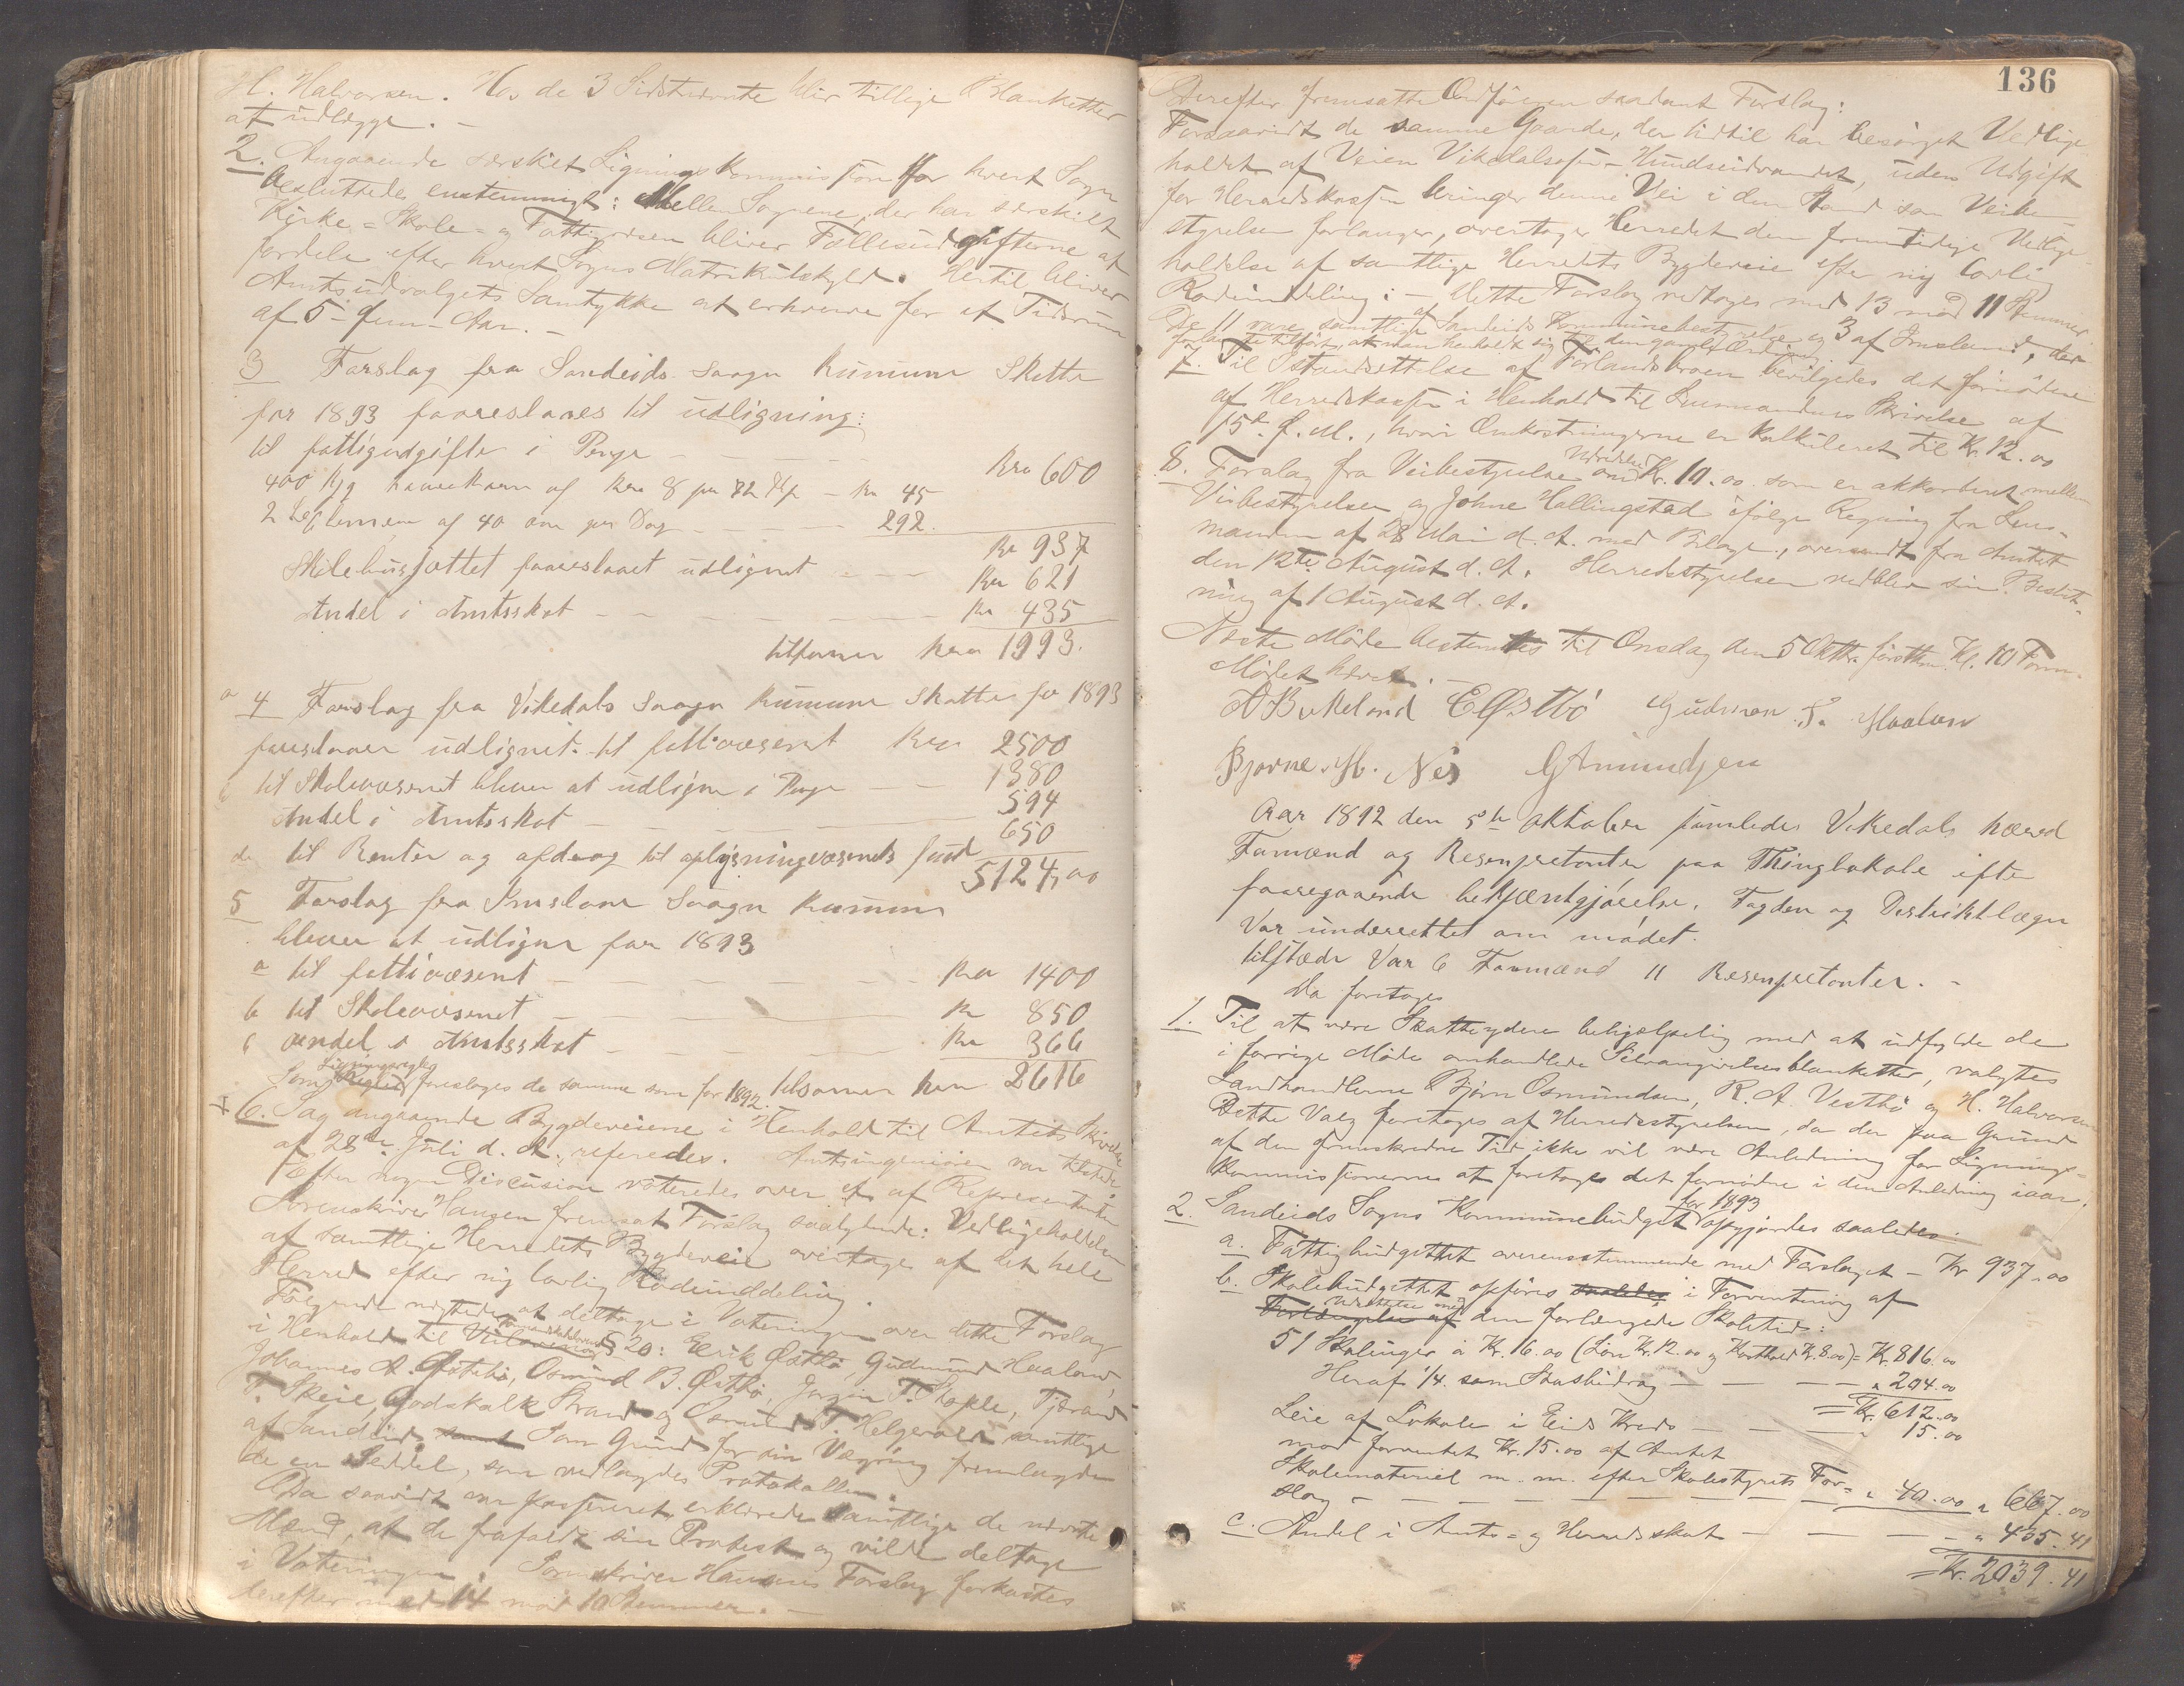 H. Halvorsen. Hos de 3 Sidstnævnte blir tillige Blanketter
at udlægge. —
2. Angaaende særskilt Ligningskommission for hvert Sogn
besluttede enstemmigt: Mellem Sognene, der har særskilt
Kirke- Skole- og Fattigvæsen bliver Fællesudgifterne at
fordele efter hvert Sogns Matrikulskyld. Hertil bliver
Amtsudvalgets Samtykke at erhverve for et Tidsrum
af 5 - fem - Aar. —
3 Farslag fra Sandeids Saagn Kumune Skatter
far 1893 faareslaaes til udligning:
til fattigudgifter i Penge — — — Kro 600
400 Kg havrekorn af Kro 8 pr 72 Kg — Kr 45
2 Læglemen af 40 øre per Dag — — 292.
Kr 937
Skolebusjættet faareslaaet udlignet — — Kr 621
Andel i Amtsskat — — — Kr 435
tilsamen Kro 1993.
a 4 Farslag fra Vikedals Saagn Kumune Skatter for 1893
faareslaaer udlignet til fattivæsenet Kro 2500
til Skolevæsenet bliver at udligne i Penge — — 1380
Andel i Amtsskat — — — 594
til Renter og afdrag til oplysningsvæsenets fund 650
5124,00
5 Farslag fra Imslans Saagn Kumune
bliver at udligne far 1893
a til fattivæsent — — — Kro 1400
b til Skolevæsenet — — — Kr 850
c andel i Amtsskat — — — Kr 366
Som Ligningsregler foreslages de samme som for 1892. tilsamen Kro 2616
6. Sag angaaende Bygdeveiene i Henhold til Amtets Skrivelse
af 28de Juli d. A., referedes. Amtsingeniøren var tilstede.
Efter nogen Discusion voteredes over et af Repræsentanten
Sorenskriver Hansen fremsat Forslag saalydende: Vedligeholdelsen
af samtlige Herredets Bygdeveie overtages af det hele
Herred efter ny lovlig Rodeinddeling.
Følgende nægtede at deltage i Voteringen over dette Forslag
i Henhold til Formandskabslovens § 20: Eerik Østbø, Gudmund Haaland,
Johannes A. Østebø, Osmund B. Østbø, Jørgin T. Stople, Tjæran
T. Skeie, Godskalk Strand og Osmund T. Helgevold samtlige
af Sandeid samt Som Grund for sin Vægring fremlagde
de en Seddel, som vedlagdes Protokollen.
Da saavidt var passeret, erklærede samtlige de nævnte
Mænd, at de frafaldt sin Protest og vilde deltage
i Voteringen. Sorenskriver Hansens Forslag forkastes
derefter med 14 mod 10 Stemmer. —
136
Derefter fremsatte Ordføreren saadant Forslag:
Forsaavidt de samme Gaarde, der hidtil har besørget Vedlige-
holdet af Veien Vikedalsosen - Hundseidvandet, uden Udgift
for Herredskassen bringer denne Vei i den Stand som Veibe-
styrelsen forlanger, overtager Herredet den fremtidige Vedlige-
holdelse af samtlige Herredets Bygdeveie efter ny lovlig
Rodeinddeling: — Dette Forslag vedtoges med 13 mod 11 Stemmer.
De 11 vare samtlige af Sandeids Kommunebestyrelse og 3 af Imsland, der
forlangte tilført, at man henholdt sig til den gamle Ordning.
7. Til Istandsettelse af Førlandsbroen bevilgedes det fornødne
af Herredskassen i Henhold til Lensmandens Skrivelse af
15de f. M., hvori Omkostningerne er kalkuleret til Kr. 12.00
8. Forslag fra Veibestyrelse om Udredelse Kr. 10.00 som er akkorderet mellem
Veibestyrelsen og Johne Hallingstad ifølge Regning fra Lens-
manden af 28 Mai d. A. med Bilage, oversendt fra Amtet
den 12te August d. A. Herredsstyrelsen vedblev sin Beslut-
ning af 1 August d. A.
Næste Møde bestemtes til Onsdag den 5 Oktbr. førstkm. Kl. 10 Form.
Mødet hævet. —
A Birkeland E Østbö Gudmun S. Haalan
Bjarne H. Nes G Amundsen
Aar 1892 den 5te oktober samledes Vikedals hæred
Farmænd og Resenpretanter paa Thinglokale efter
faaregaaende bekjæntgjørelse. Fagden og Destriktlægen
Var underrettet om mødet.
tilstæde Var 6 Farmænd 11 Resenpretanter. —
Da foretages
1. Til at være Skatteydere behjælpelig med at udfylde de
i forrige Møde omhandlede Selvangivelsesblanketter, valgtes
Landhandlerne Bjørn Osmundsen, R. A. Vestbø og H. Halvorsen
Dette Valg foretages af Herredsstyrelsen, da der paa Grund
af den fremskredne Tid ikke vil være Anledning for Lignings-
kommissionerne at foretage det fornødne i den Anledning iaar.
2. Sandeids Sogns Kommunebudget for 1893 opgjordes saaledes:
a. Fattigbudgettet overensstemmende med Forslaget — Kr 937.00
b. Skolebudgettet opføres saaledes i Forventning af
Forlængelse af den forlængede Skoletid:
51 Skoleuger à Kr. 16.00 (Løn Kr. 12.00 og Kosthold Kr. 8.00) = Kr. 816.00
Heraf 1/4 som Statsbidrag — — — " 204.00
= Kr. 612.00
Leie af Lokale i Eids Kreds — — — " 15.00
mod forventet Kr. 15.00 af Amtet
Skolemateriel m. m. efter Skolestyrets For-
slag — — — — " 40.00 " 667.00
c. Andel i Amts- og Herredsskat — — — " 435.41
= Kr. 2039.41